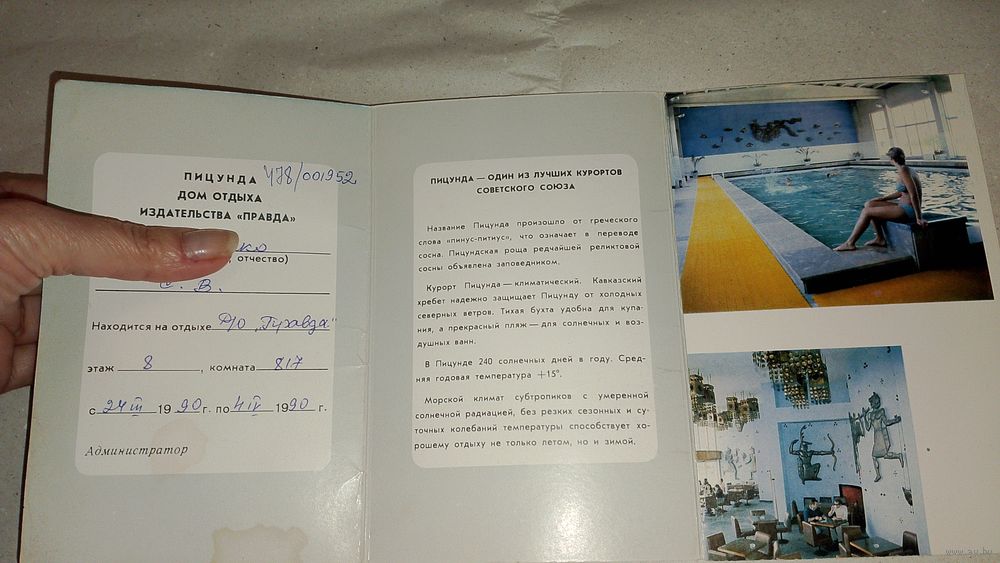 ПИЦУНДА 478/001952
ДОМ ОТДЫХА
ИЗДАТЕЛЬСТВА «ПРАВДА»
ко
, отчество)
С. В.
Находится на отдыхе Д/О „Правда"
этаж 8 , комната 817
с 24 III 1990 г. по 4 IV 1990 г.
Администратор
ПИЦУНДА — ОДИН ИЗ ЛУЧШИХ КУРОРТОВ
СОВЕТСКОГО СОЮЗА
Название Пицунда произошло от греческого
слова «пинус-питиус», что означает в переводе
сосна. Пицундская роща редчайшей реликтовой
сосны объявлена заповедником.
Курорт Пицунда — климатический. Кавказский
хребет надежно защищает Пицунду от холодных
северных ветров. Тихая бухта удобна для купа-
ния, а прекрасный пляж — для солнечных и воз-
душных ванн.
В Пицунде 240 солнечных дней в году. Сред-
няя годовая температура +15°.
Морской климат субтропиков с умеренной
солнечной радиацией, без резких сезонных и су-
точных колебаний температуры способствует хо-
рошему отдыху не только летом, но и зимой.
www.ay.by